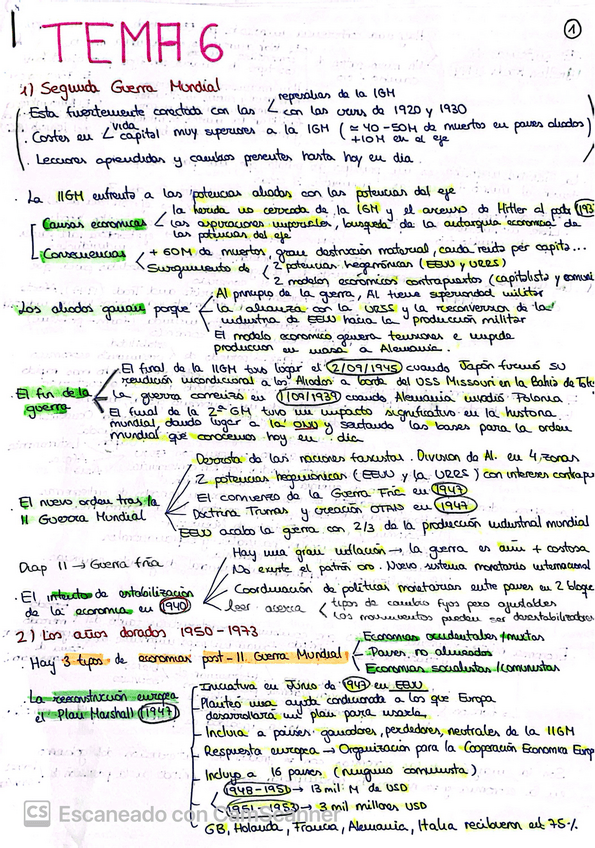 1
TEMA 6
1) Segunda Guerra Mundial
Esta fuertemente conectada con las < represalias de la IGM
con las crisis de 1920 y 1930
. Costes en < vida
capital muy superiores a la IGM (≈ 40-50M de muertos en paises aliados)
+10M en el eje
. Lecciones aprendidas y cambios presentes hasta hoy en dia.
. La IIGM enfrenta a las potencias aliadas con las potencias del eje
Causas economicas < la herida no cerrada de la IGM y el ascenso de Hitler al poder (193
las aspiraciones imperiales, busqueda de la autarquia economica de
las potencias del eje
Consecuencias < + 60M de muertos, gran destruccion material, caida renta per capita...
Surgimiento de < 2 potencias hegemónicas (EEUU y URSS)
2 modelos económicos contrapuestos (capitalista y comuni
Los aliados ganan porque
Al principio de la guerra, Al tiene superioridad militar
la alianza con la URSS y la reconversion de la
industria de EEUU hacia la producción militar
El modelo economico genera tensiones e impide
produccion en masa a Alemania.
. El fin de la
guerra
El final de la IIGM tuvo lugar el 2/09/1945 cuando Japón firmó su
rendición incondicional a los Aliados a bordo del USS Missouri en la Bahía de Tok
La guerra comenzó en 1/09/1939 cuando Alemania invadió Polonia
El final de la 2ª GM tuvo un impacto significativo en la historia
mundial dando lugar a la ONU y sentando las bases para la orden
mundial que conocemos hoy en dia.
. El nuevo orden tras la
II Guerra Mundial
Derrota de las naciones fascistas. Division de Al. en 4 zonas
2 potencias hegemónicas (EEUU y la URSS) con intereses contrapu
El comienzo de la Guerra Fria en 1947
Doctrina Truman y creación OTAN en 1947
EEUU acabo la guerra con 2/3 de la producción industrial mundial
Diap 11 → Guerra fria
. El intento de estabilización
de la economia en 1940
Hay una gran inflación → la guerra es aún + costosa
No existe el patrón oro. Nuevo sistema monetario internacional
Coordinación de políticas monetarias entre paises en 2 bloque
leer acerca < tipos de cambio fijos pero ajustables
los movimientos pueden ser desestabilizadores
2) Los años dorados 1950-1973
Hay 3 tipos de economias post-II Guerra Mundial
Economias occidentales/mixtas
Paises no alineados
Economias socialistas/comunistas
La reconstrucción europea
el Plan Marshall (1947)
Iniciativa en Junio de 1947 en EEUU
Planteó una ayuda condicionada a los que Europa
desarrollará un plan para usarla
Incluia a paises ganadores, perdedores, neutrales de la IIGM
Respuesta europea → Organización para la Cooperación Economica Europ
Incluyo a 16 paises (ninguno comunista)
1948-1951 → 13 mil M de USD
1951-1953 → 3 mil millones USD
GB, Holanda, Francia, Alemania, Italia recibieron el 75%
CS Escaneado con CamScanner